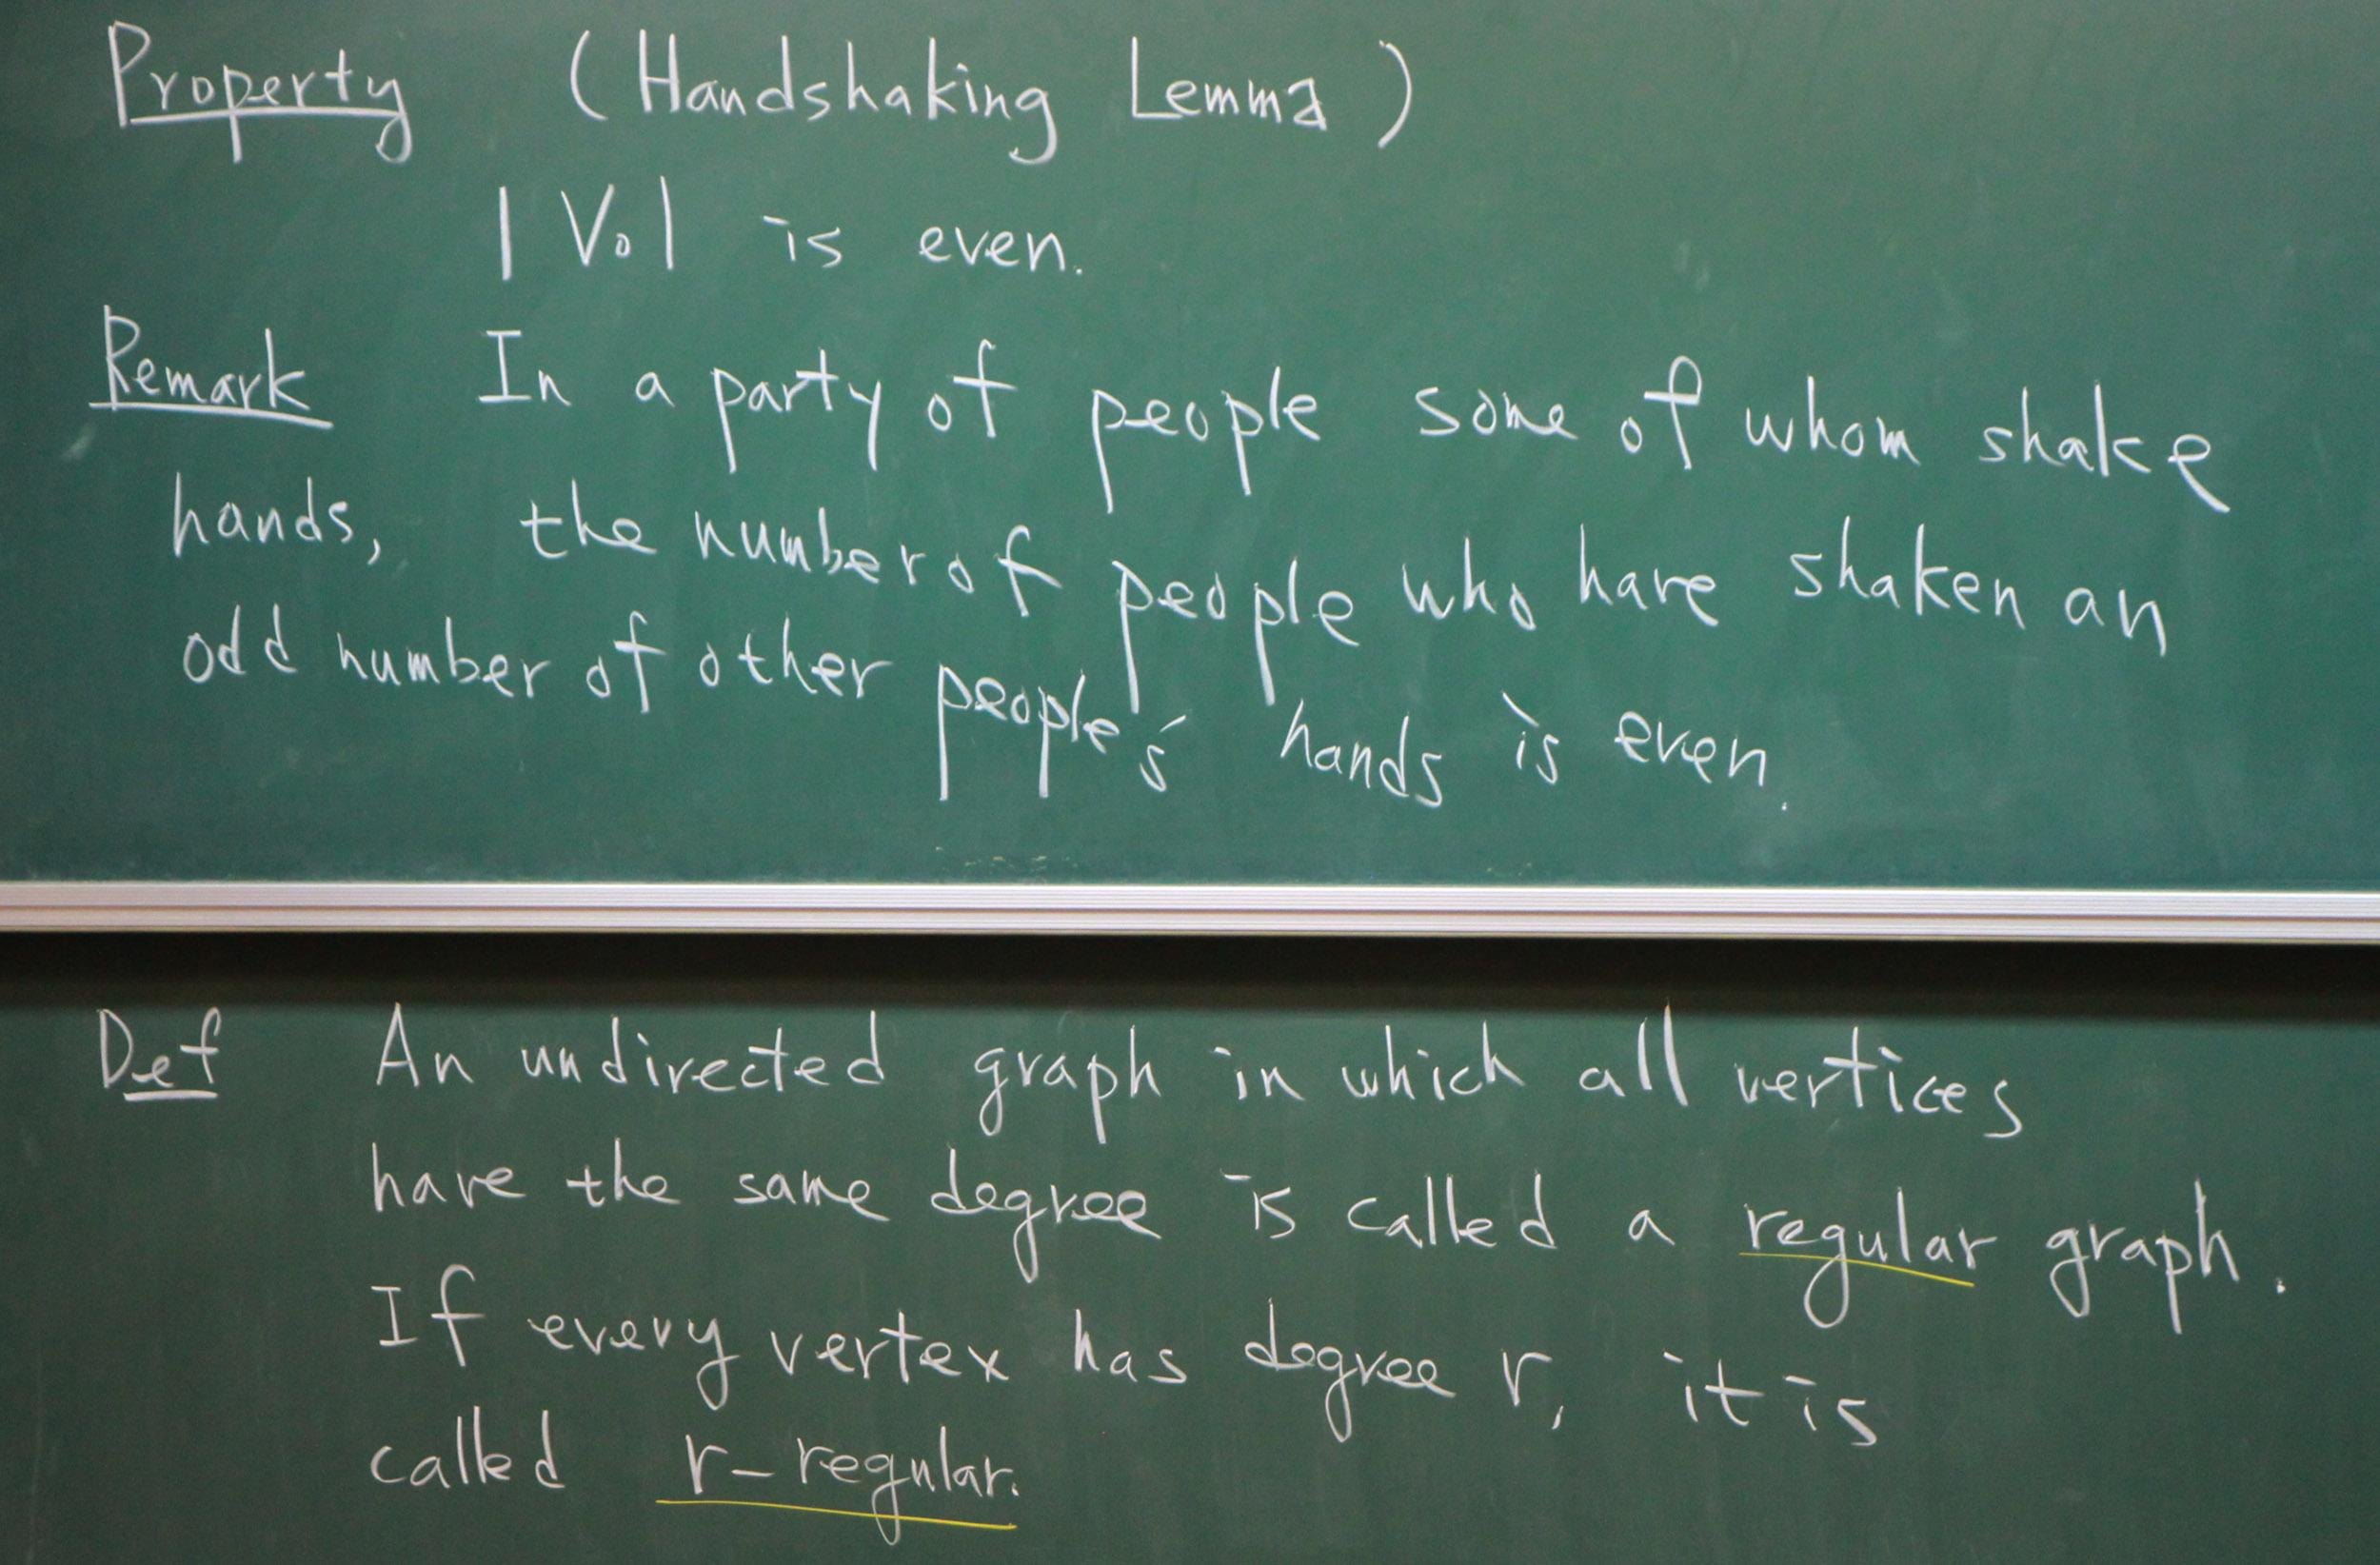 Property (Handshaking Lemma)
|V₀| is even.
Remark In a party of people some of whom shake
hands, the number of people who have shaken an
odd number of other people's hands is even.
Def An undirected graph in which all vertices
have the same degree is called a regular graph.
If every vertex has degree r, it is
called r-regular.